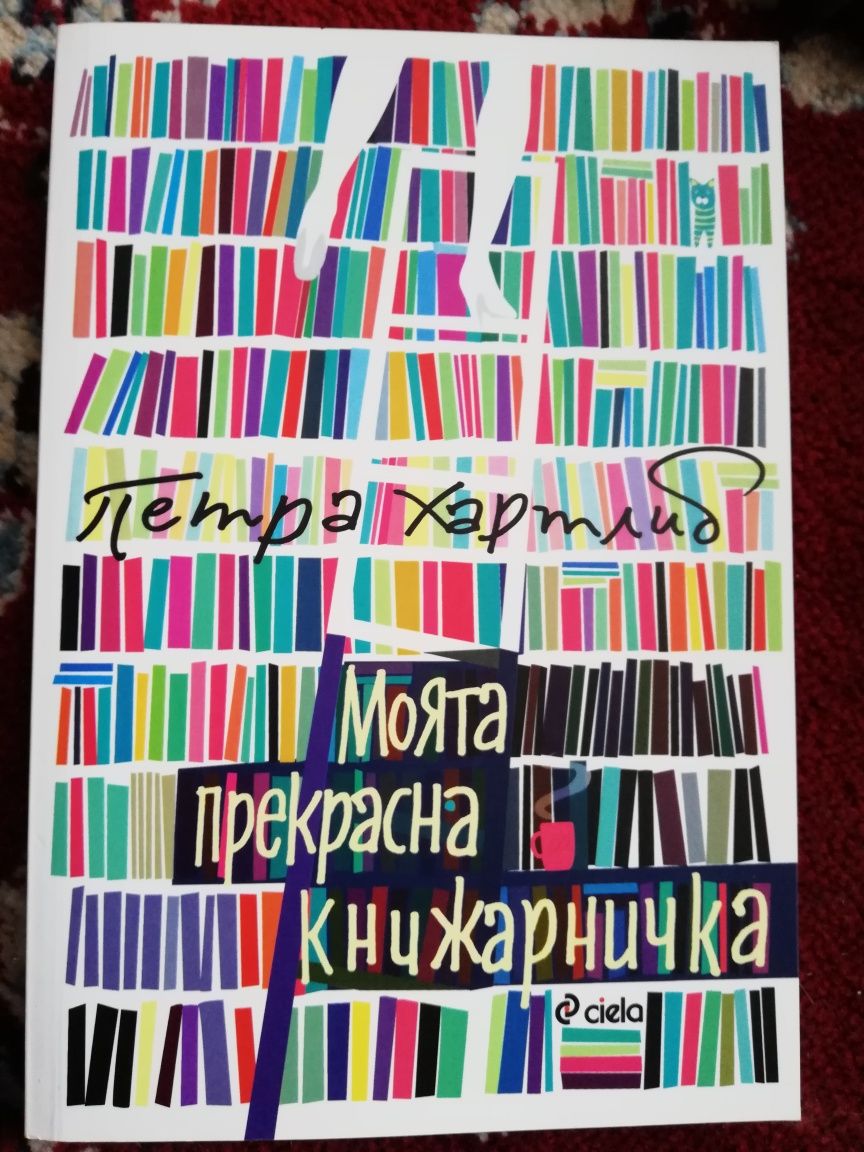 Петра Хартлиб
Моята
прекрасна
книжарничка
ciela